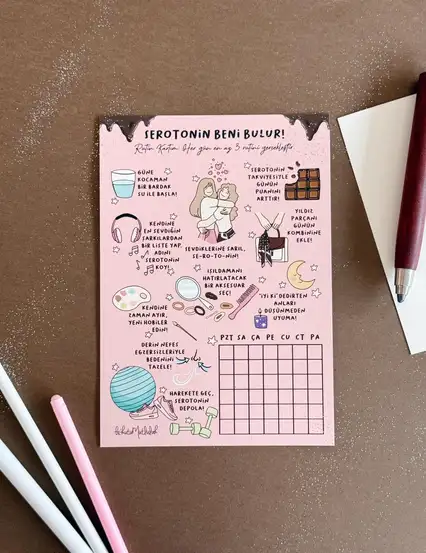 SEROTONİN BENİ BULUR!
Rutin Kartım: Her gün en az 3 rutini gerçekleştir.
GÜNE
KOCAMAN
BİR BARDAK
SU İLE BAŞLA!
SEROTONİN
TAKVİYESİYLE
GÜNÜN
PUANINI
ARTTIR!
KENDİNE
EN SEVDİĞİN
ŞARKILARDAN
BİR LİSTE YAP,
ADINI
SEROTONİN
KOY!
SEVDİKLERİNE SARIL,
SE-RO-TO-NİN!
YILDIZ
PARÇANI
GÜNÜN
KOMBİNİNE
EKLE!
IŞILDAMANI
HATIRLATACAK
BİR AKSESUAR
SEÇ!
KENDİNE
ZAMAN AYIR,
YENİ HOBİLER
EDİN!
"İYİ Kİ" DEDİRTEN
ANLARI
DÜŞÜNMEDEN
UYUMA!
DERİN NEFES
EGZERSİZLERİYLE
BEDENİNİ
TAZELE!
HAREKETE GEÇ,
SEROTONİN
DEPOLA!
PZT SA ÇA PE CU CT PA